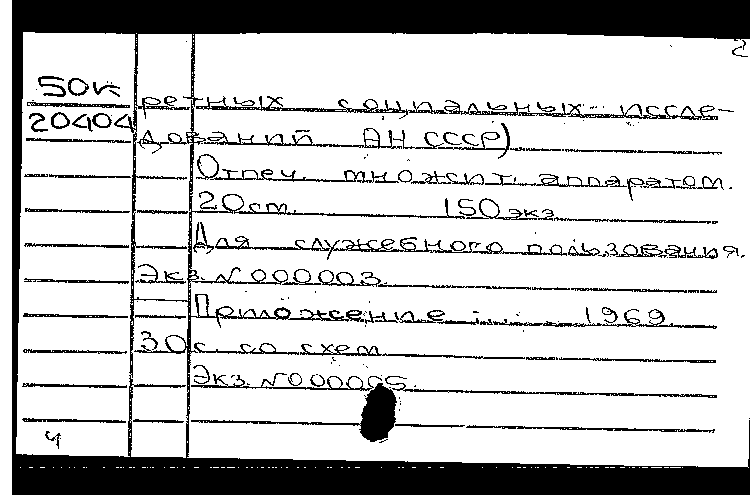 2
50к ретных социальных иссле-
20404 дований АН СССР)
Отпеч. множит. аппаратом.
20см. 150 экз.
Для служебного пользования.
Экз. N000003.
Приложение ..... 1969.
30с. со схем.
Экз. N000005.
4